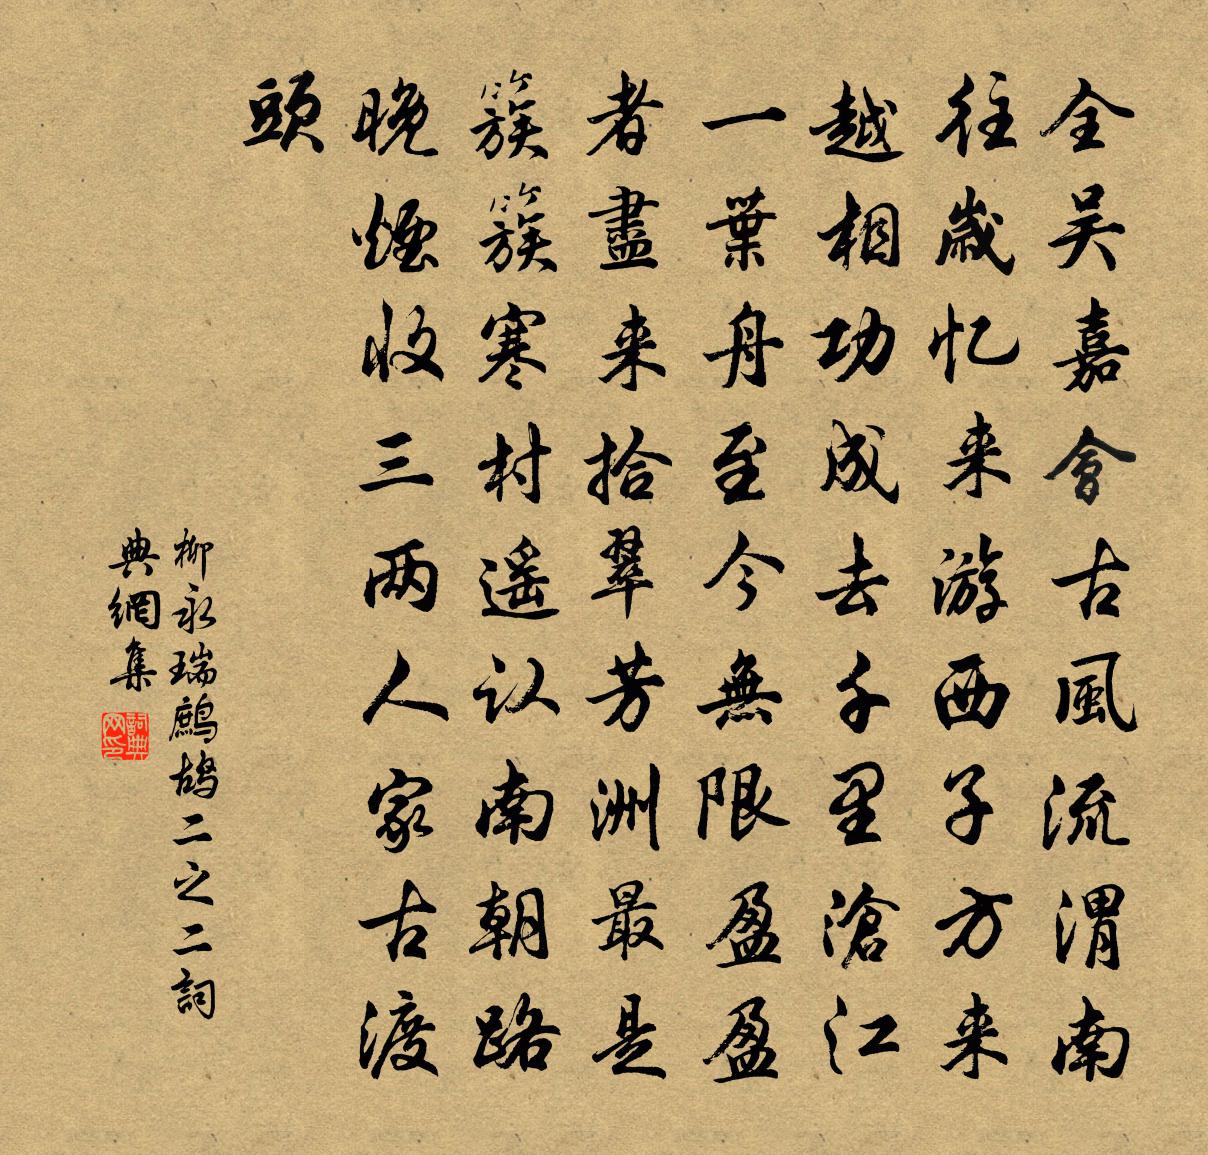 全吴嘉會古風流渭南
往歲忆来游西子方来
越相功成去千里滄江
一葉舟至今無限盈盈
者盡来拾翠芳洲最是
簇簇寒村遥认南朝路
晚煙收三两人家古渡
頭
柳永瑞鷓鴣二之二詞
典網集
詞典
网印